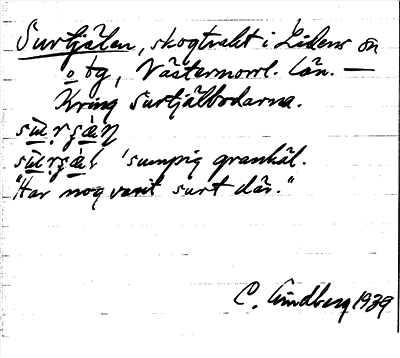 Surtjälen, skogtrakt i Lidens sn
o tg, Västernorrl. län. —
Kring Surtjälbodarna.
'sumpig grankäl.
"Har nog varit surt där."
C. Lindberg 1939